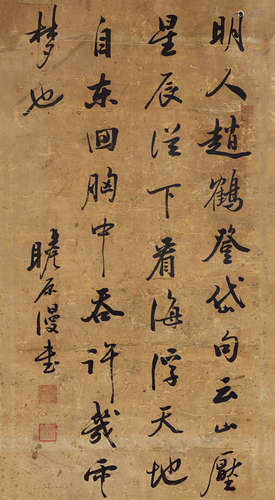 明人趙鶴登岱句云山壓
星辰從下看海浮天地
自東回胸中吞許幾雲
梦也
瞻原漫書